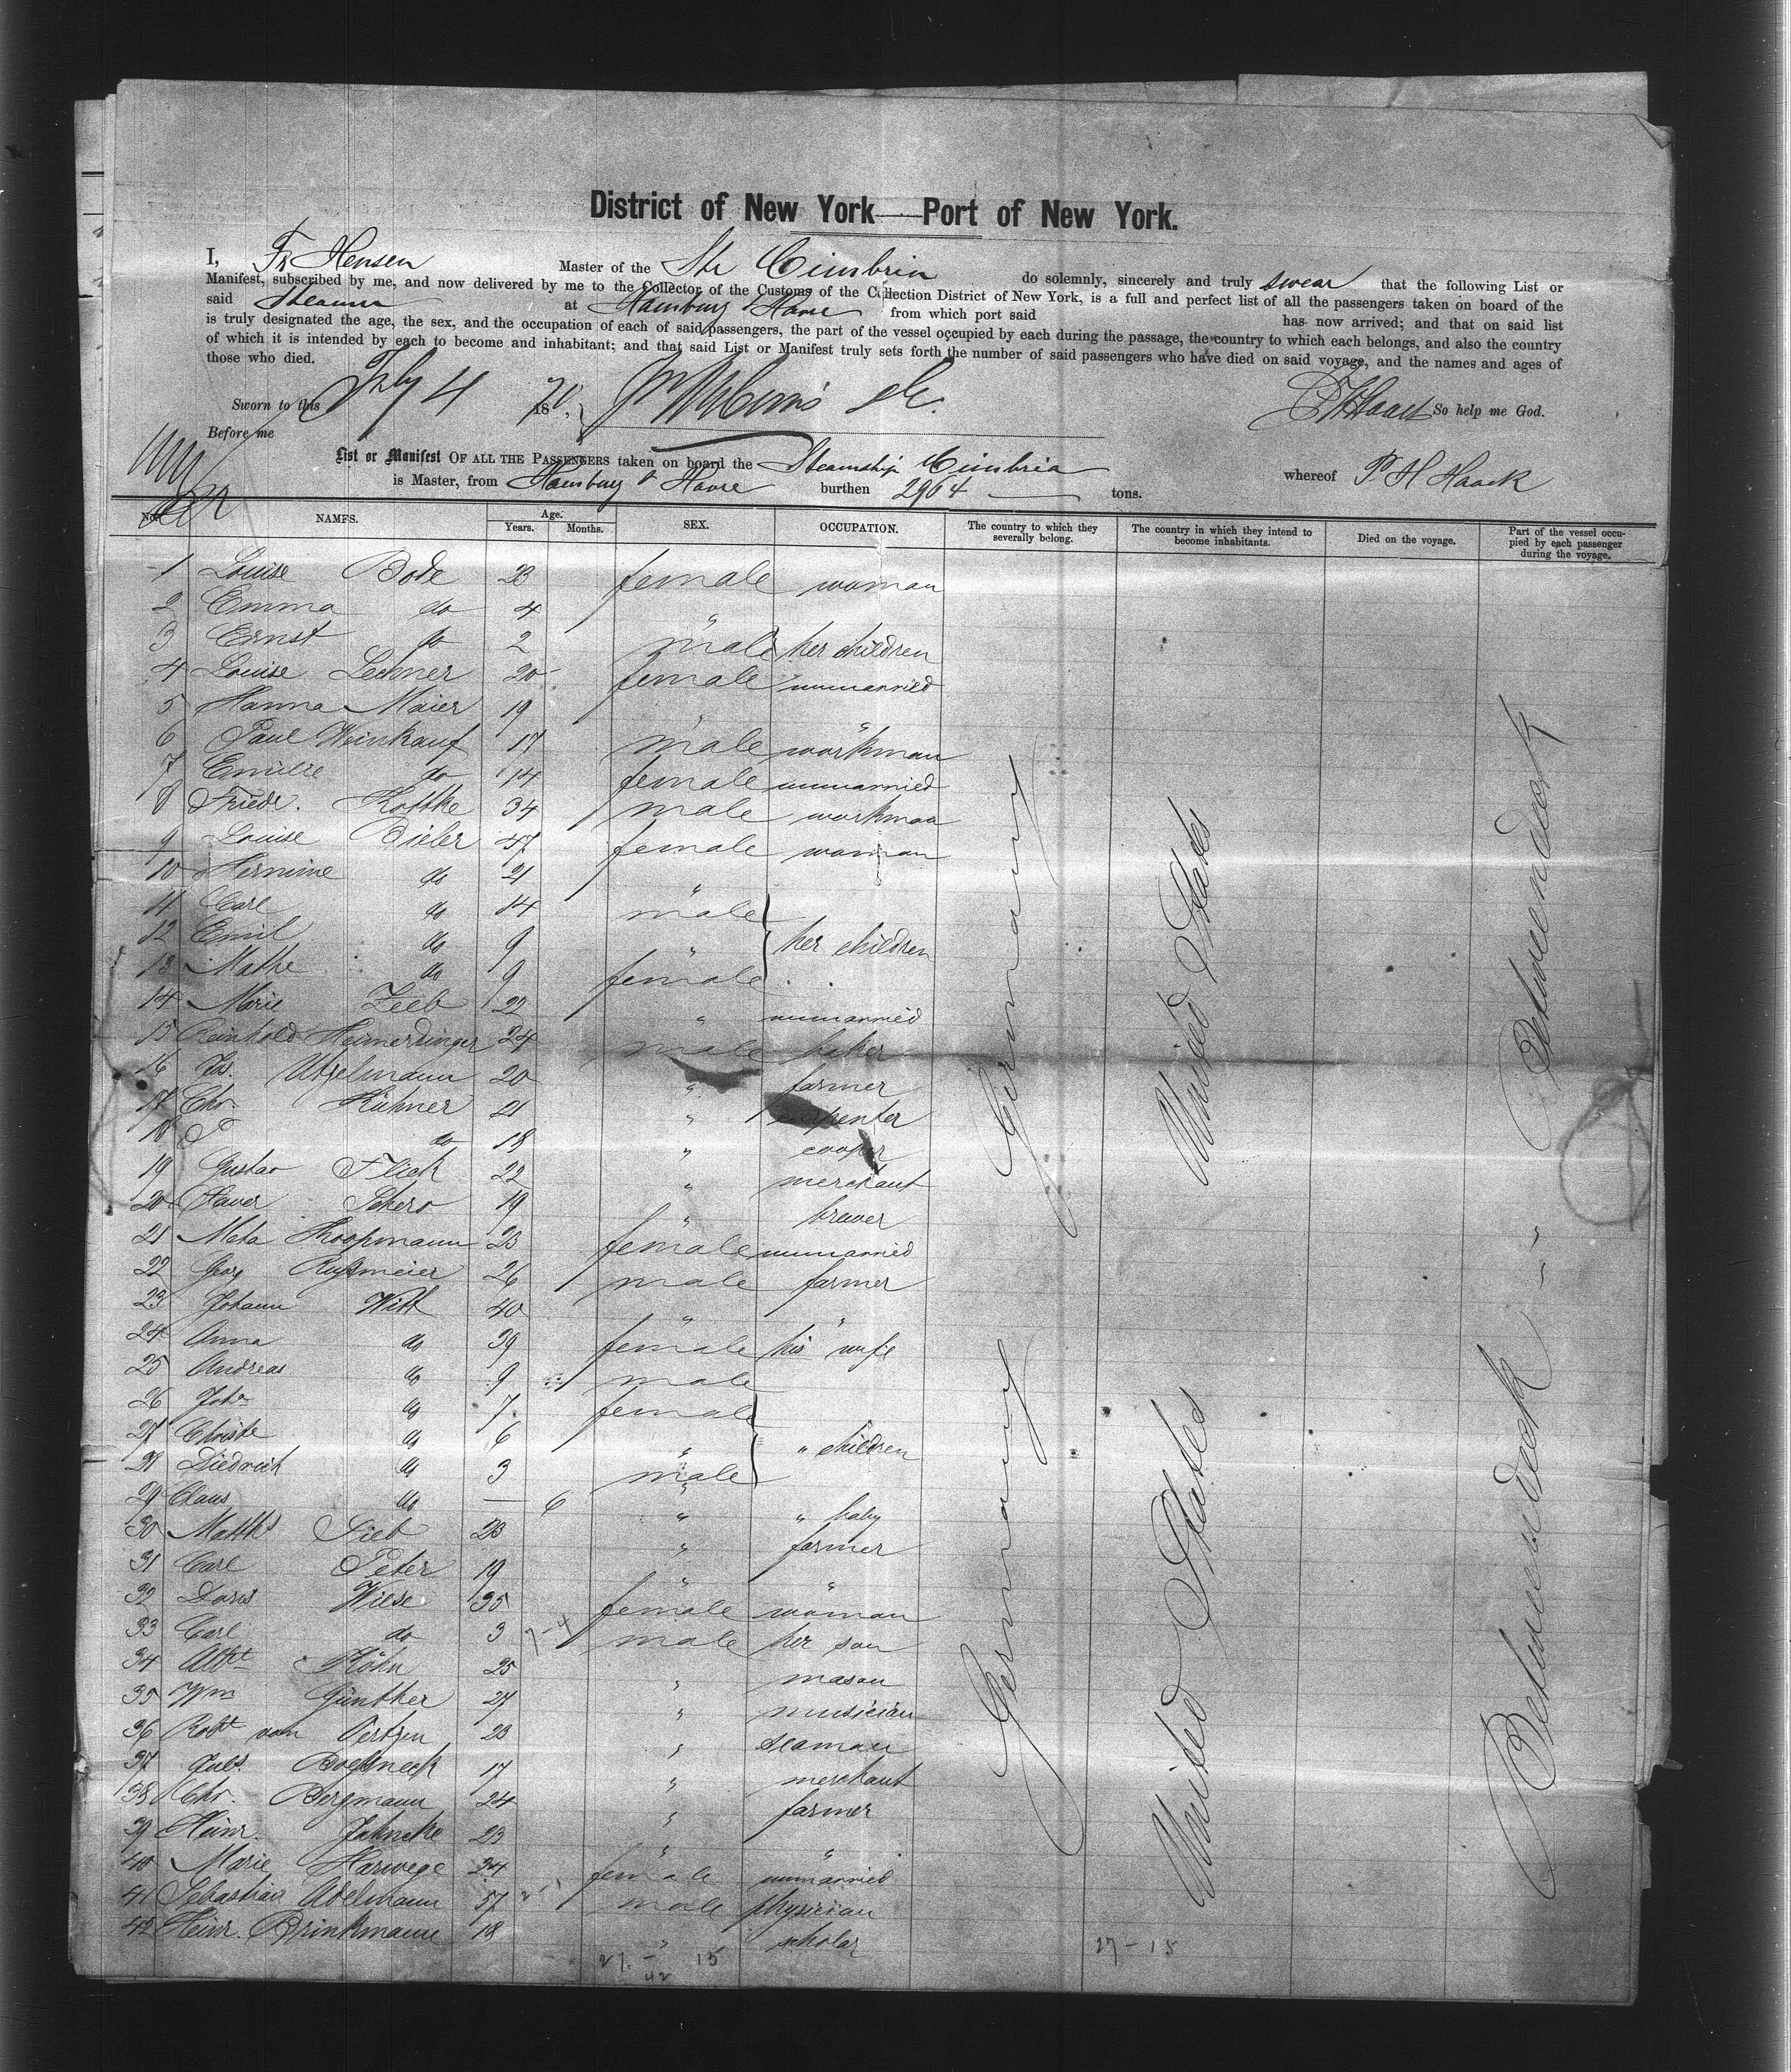 District of New York—Port of New York.
I, Fr Hensen Master of the Str Cimbria do solemnly, sincerely and truly swear that the following List or
Manifest, subscribed by me, and now delivered by me to the Collector of the Customs of the Collection District of New York, is a full and perfect list of all the passengers taken on board of the
said Steamer at Hamburg & Havre from which port said has now arrived; and that on said list
is truly designated the age, the sex, and the occupation of each of said passengers, the part of the vessel occupied by each during the passage, the country to which each belongs, and also the country
of which it is intended by each to become and inhabitant; and that said List or Manifest truly sets forth the number of said passengers who have died on said voyage, and the names and ages of
those who died.
Sworn to this 4 18 So help me God.
Before me
List or Manifest OF ALL THE PASSENGERS taken on board the Steamship Cimbria whereof P H Haack
is Master, from Hamburg & Havre burthen 2964 tons.
No. NAMES. Age. Years. Months. SEX. OCCUPATION. The country to which they severally belong. The country in which they intend to become inhabitants. Died on the voyage. Part of the vessel occupied by each passenger during the voyage.
1 Louise Bode 23 female woman
2 Emma do 4 "
3 Ernst do 2 male her children
4 Louise Lechner 20 female unmarried
5 Hanna Maier 19 " "
6 Paul Weinkauf 17 male workman
7 Emilie do 14 female unmarried
8 Friedr. Koffke 34 male workman
9 Louise Bieler 47 female woman
10 Hermine do 21 "
11 Carl do 14 male
12 Emil do 9 " her children
13 Mathe do 9 female
14 Marie Zeeb 22 " unmarried
15 Reinhold Heimerdinger 24 male baker
16 Utzelmann 20 " farmer
17 Chr. Kühner 21 " carpenter
18 do 18 " cooper
19 Gustav Flick 22 " merchant
20 Xaver Schero 19 " brewer
21 Meta Koopmann 23 female unmarried
22 Georg Rußmeier 26 male farmer
23 Johann Witt 40 " "
24 Anna do 39 female his wife
25 Andreas do 9 male
26 Joha do 7 female
27 Christe do 6 " " children
28 Diedrich do 3 male
29 Claus do — 6 " " baby
30 Matths Fieb 23 " farmer
31 Carl Peter 19 " "
32 Doris Wiese 35 female woman
33 Carl do 3 male her son
34 Albt Köhn 25 " mason
35 Wm Günther 27 " musician
36 Robt von Oertzen 23 " seaman
37 Juls Boeßneck 17 " merchant
38 Chr. Bergmann 24 " farmer
39 Heinr. Jahncke 23 " "
40 Marie Harwege 24 female unmarried
41 Sebastian Adelmann 57 male physician
42 Heinr. Brinkmann 18 " scholar
Germany
United States
Betweendeck
Germany
United States
Betweendeck
27 - 15
42
27 - 15